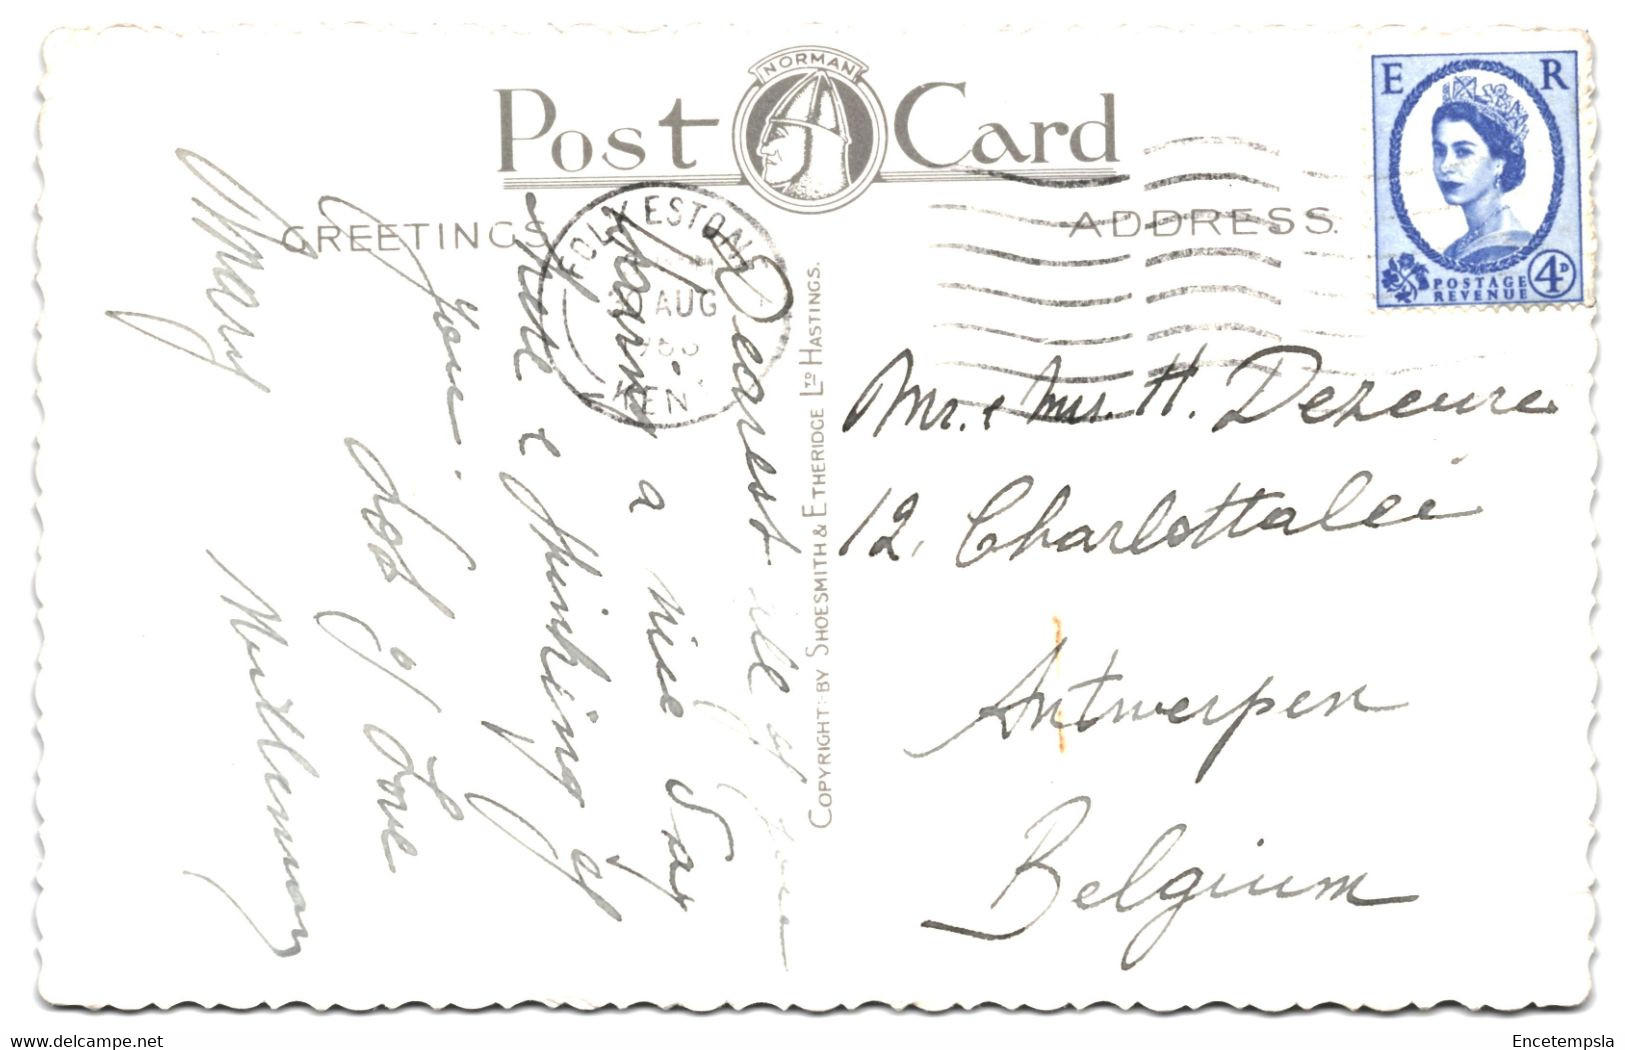 NORMAN
Post Card
GREETINGS
ADDRESS.
E R
POSTAGE
REVENUE
4D
FOLKESTONE
AUG
KENT
Dearest all of you
Having a nice Day
here & thinking of
you.
Lots of Love
Mary
COPYRIGHT BY SHOESMITH & ETHERIDGE LTD HASTINGS.
Mr. & Mrs. H. Dezeure
12, Charlottalei
Antwerpen
Belgium
delcampe.net
Encetempsla